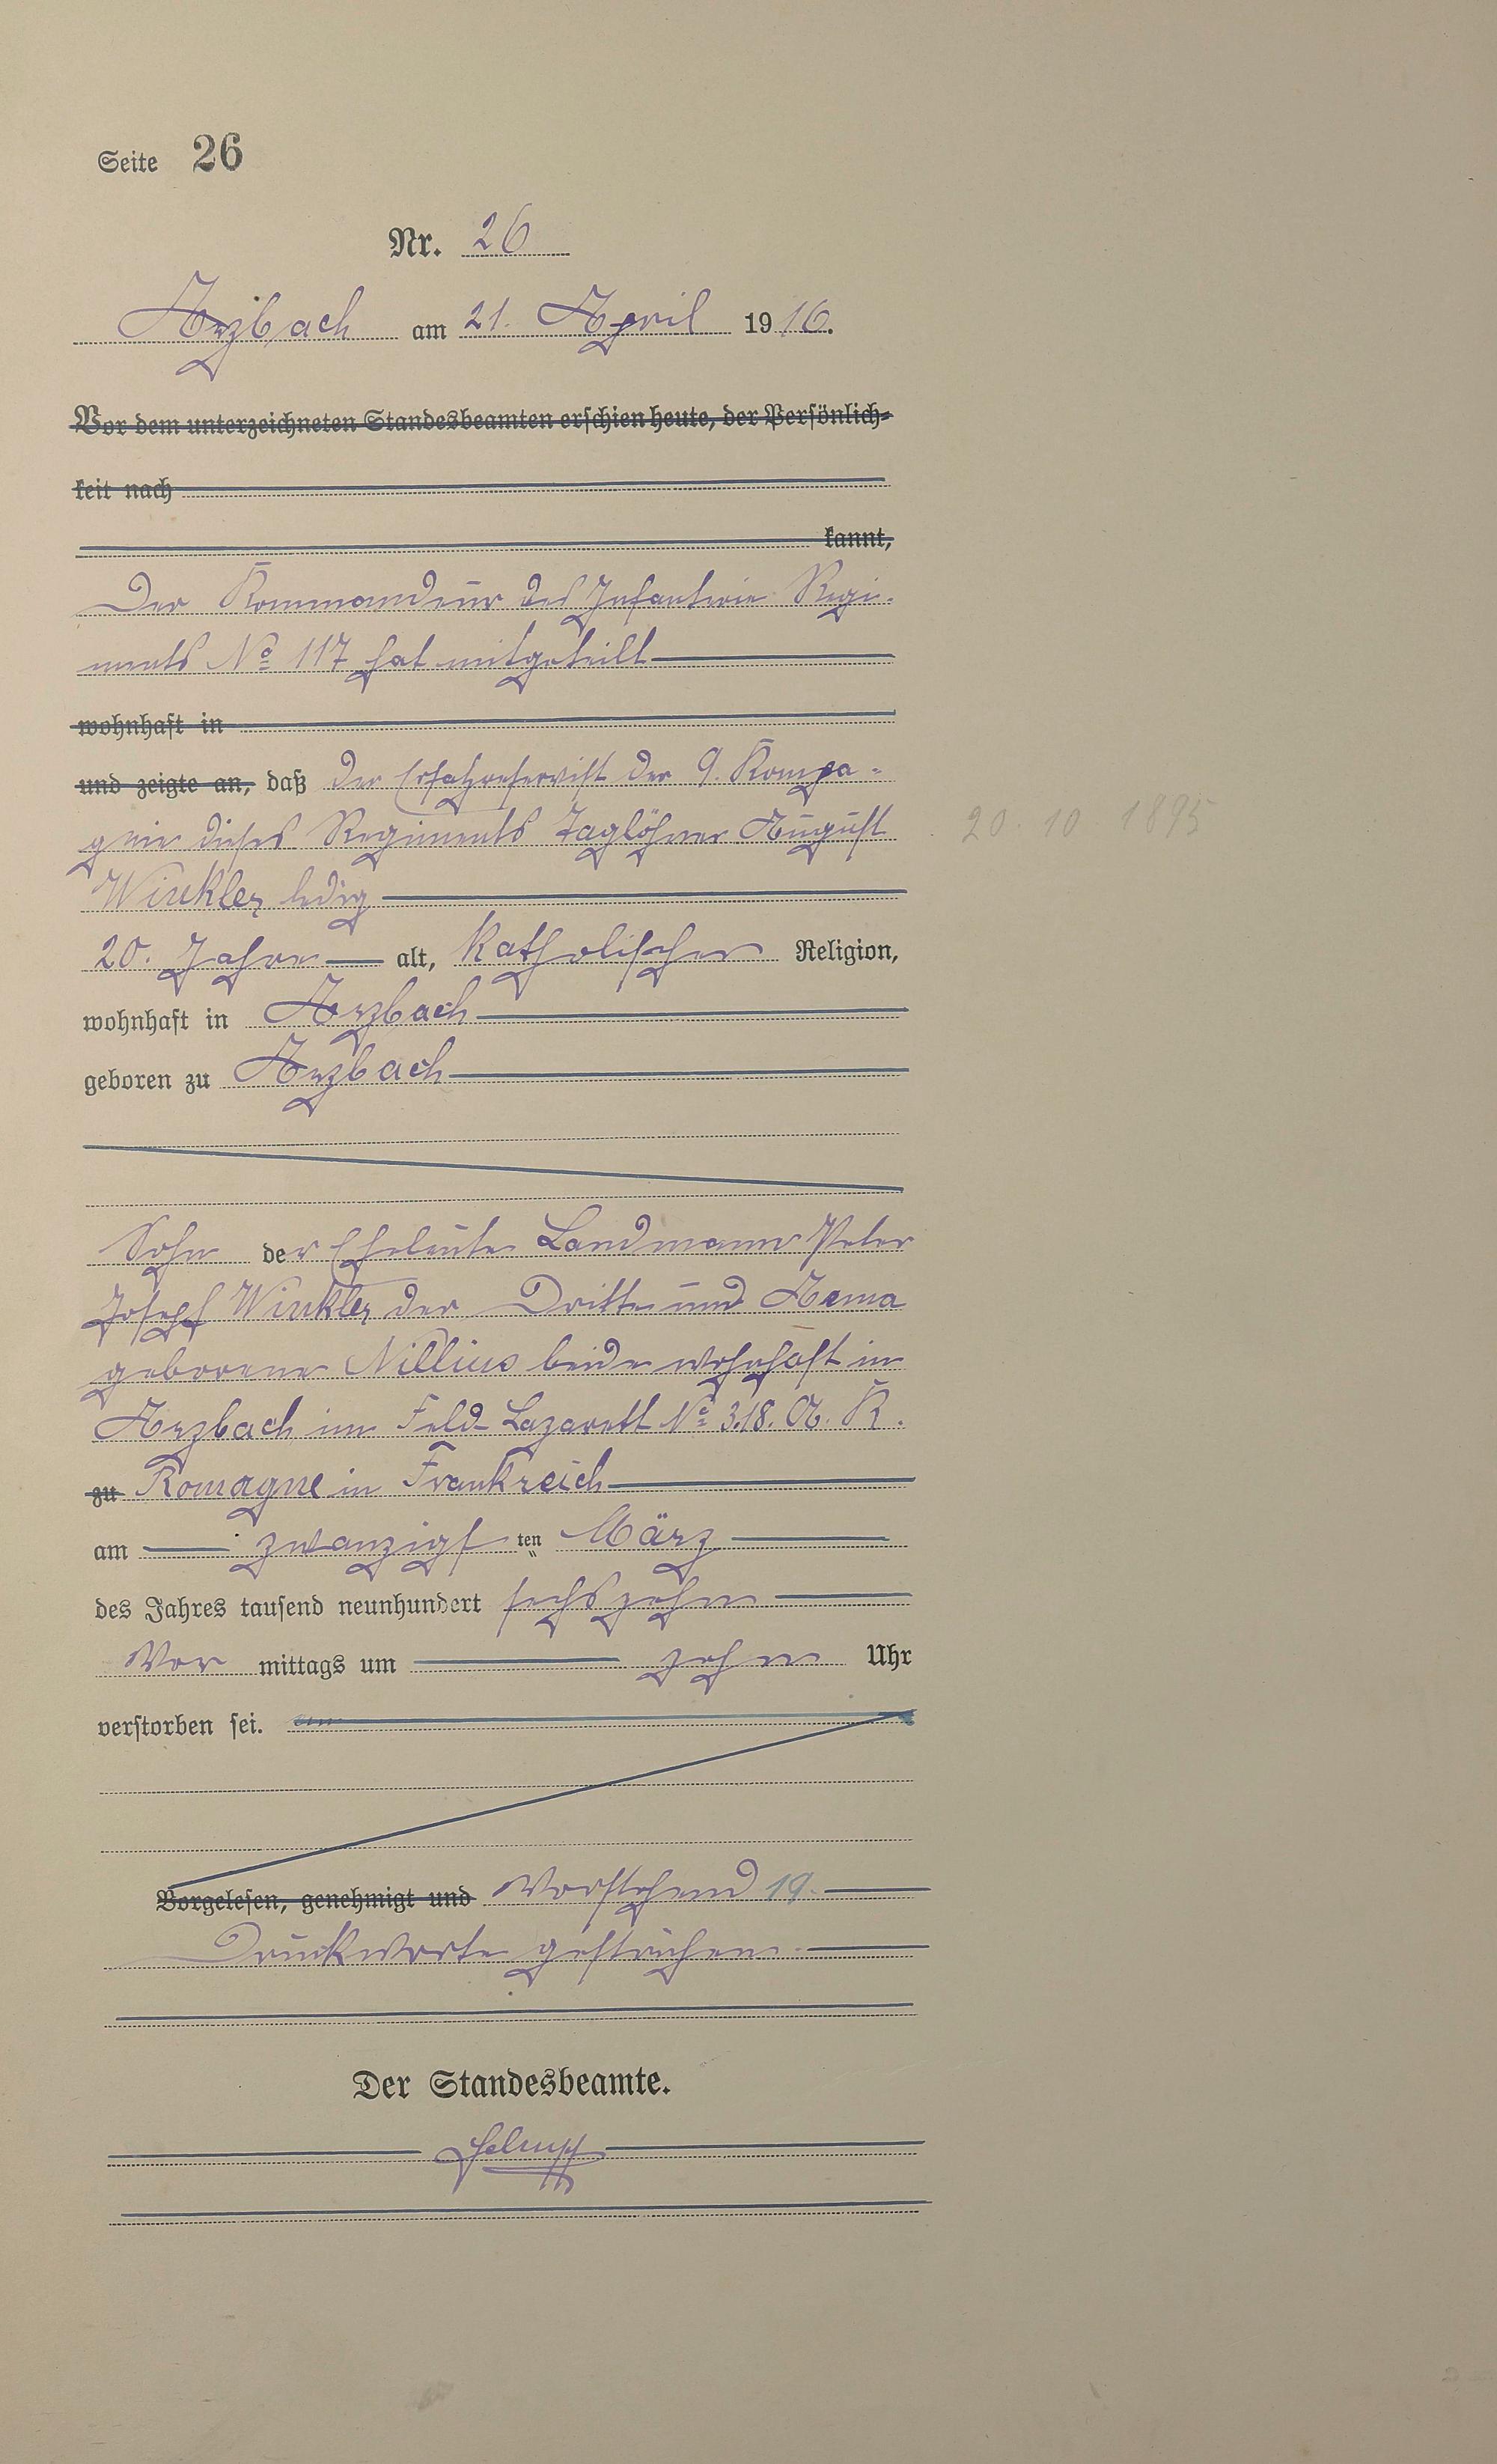 Seite 26
Nr. 26
Arzbach am 21. April 1916.
Vor dem unterzeichneten Standesbeamten erschien heute, der Persönlich-
keit nach
kannt,
Der Kommandeur des Infanterie Regi-
ments No 117 hat mitgeteilt
wohnhaft in
und zeigte an, daß der Ersatzreservist der 9. Kompa-
gnie dieses Regiments Taglöhner August
20. 10. 1895
Winkler ledig
20. Jahre alt, katholischer Religion,
wohnhaft in Arzbach
geboren zu Arzbach
Sohn der Eheleute Landmann Peter
Josef Winkler der Dritte und
geborene Nillius beide wohnhaft in
Arzbach im Feld-Lazarett No 3.18. A. K.
zu Romagne in Frankreich
am zwanzigsten März
des Jahres tausend neunhundert sechszehn
Vor mittags um zehn Uhr
verstorben sei.
Vorgelesen, genehmigt und Vorstehend 19.
Druckworte gestrichen.
Der Standesbeamte.